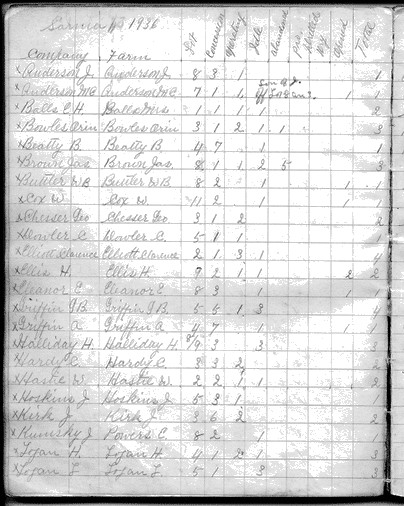 Sarnia 1936
Company Farm Lot Concession Operating Idle Abandoned Total
x Anderson J. Anderson J. 8 3 1 1
x Anderson Mc Anderson Mc 7 1 1 1
Balls C H. Balls Mrs 1 1 1 1 2
x Bowles Orin Bowles Orin 3 1 2 1 1 3
x Beatty B Beatty B 4 7 1 1
x Brown Jas Brown Jas 8 1 1 2 5 3
x Buttler W B Buttler W B 8 2 1 1 1
x Cox W Cox W 11 2 1 1 1
x Chesser Geo Chesser Geo 3 1 2 2
x Dowler C Dowler C. 5 1 1 1
x Elliott Clarence Elliott Clarence 2 1 3 1 4
x Ellis H. Ellis H. 7 2 1 1 2 2
x Eleanor E Eleanor E 8 3 1 1 1
x Griffin J B. Griffin J B. 5 5 1 3 4
x Griffin A Griffin A 4 7 1 1 1
x Halliday H. Halliday H. 8/9 3 3 3
x Hardy C. Hardy C 8 3 2 2
x Hastie W. Hastie W. 2 2 1 1 2
x Hoskins J Hoskins J. 5 3 1 1
x Kirk J Kirk J 3 6 2 2
x Kumsky J Powers C. 8 2 1 1
x Logan H. Logan H. 4 1 2 1 3
x Logan L Logan L. 5 1 3 3